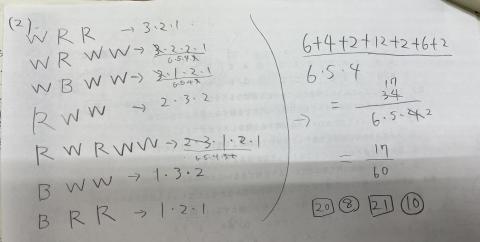 (2)
W R R → 3·2·1
W R W W → 3·2·2·1 / 6·5·4·3
W B W W → 3·1·2·1 / 6·5·4·3
R W W → 2·3·2
R W R W W → 2·3·1·2·1 / 6·5·4·3·2
B W W → 1·3·2
B R R → 1·2·1
6+4+2+12+2+6+2 / 6·5·4
→ = 17 34 / 6·5·4 2
= 17 / 60
20 8 21 10